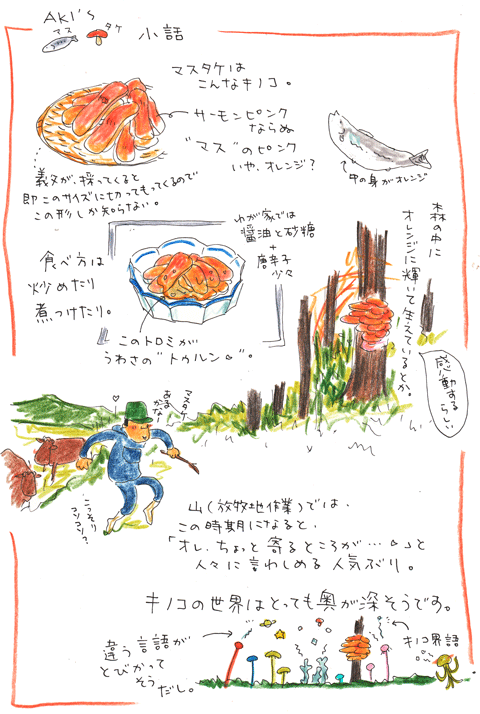 AKI's
マス
タケ
小話
マスタケは
こんなキノコ。
サーモンピンク
ならぬ
"マス"のピンク
いや、オレンジ?
中の身がオレンジ
義父が、採ってくると
即このサイズに切ってもってくるので
この形しか知らない。
わが家では
醤油と砂糖
+
唐辛子
少々
食べ方は
炒めたり
煮つけたり。
このトロミが
うわさの"トゥルン"。
森の中に
オレンジに輝いて生えているとか。
感動する
らしい
マスタケ
あるかな〜
こっそり
コソコソ?
山(放牧地作業)では、
この時期になると、
「オレ、ちょっと寄るところが…」と
人々に言わしめる人気ぶり。
キノコの世界はとっても奥が深そうです。
違う言語が
とびかって
そう
だし。
キノコ界語